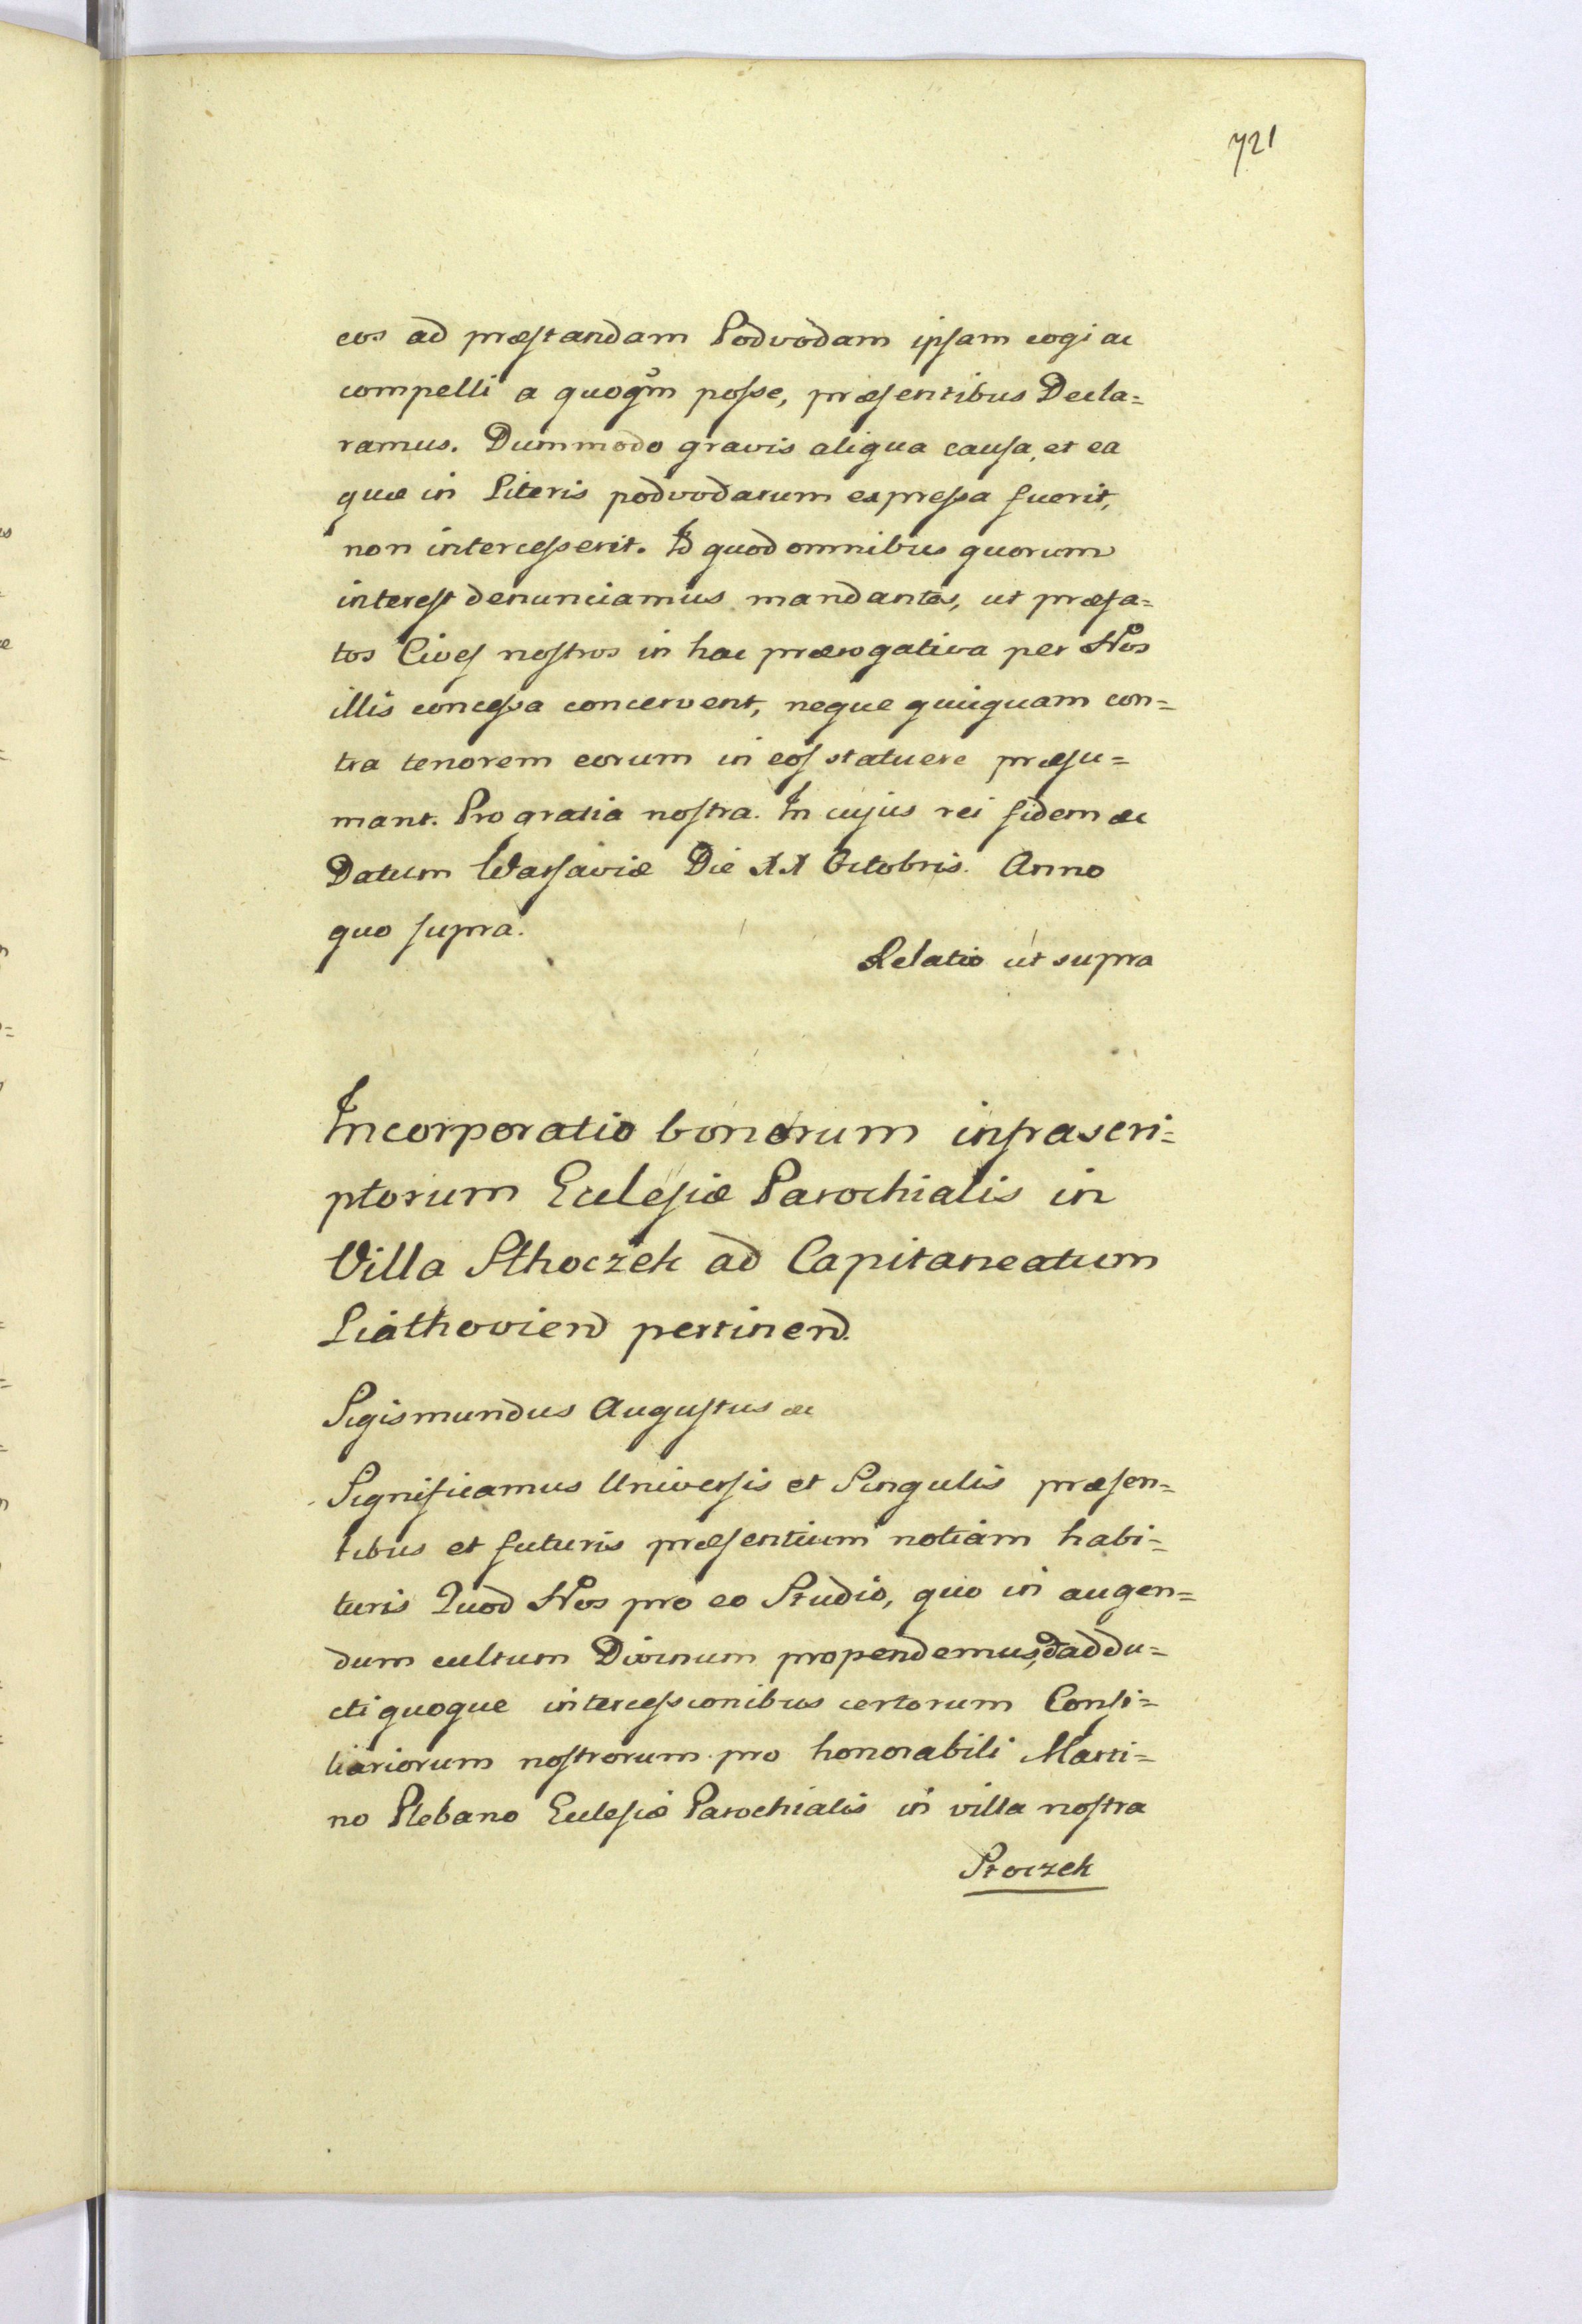 721
eos ad præstandam Podvodam ipsam cogi ac
compelli a quoqm posse, præsentibus Decla=
ramus. Dummodo gravis aliqua causa, et ea
quæ in Literis podvodarum expressa fuerit,
non intercesserit. Id quod omnibus quorum
interest denunciamus mandantes, ut præfa=
tos Cives nostros in hac prærogativa per Nos
illis concessa concervent, neque quiiquam con=
tra tenorem eorum in eos statuere præsu=
mant. Pro gratia nostra. In cujus rei fidem &c
Datum Warsaviæ Die XX Octobris. Anno
quo supra.
Relatio ut supra
Incorporatio bonorum infrascri=
ptorum Eclesiæ Parochialis in
Villa Sthoczek ad Capitaneatum
Liathovien pertinen.
Sigismundus Augustus &c
Significamus Universis et Singulis præsen=
tibus et futuris præsentium notiam habi=
turis Quod Nos pro eo Studio, quo in augen=
dum cultum Divinum propendemus, addu=
cti quoque intercessionibus certorum Consi=
liariorum nostrorum pro honorabili Marti=
no Plebano Eclesiæ Parochialis in villa nostra
Stoczek